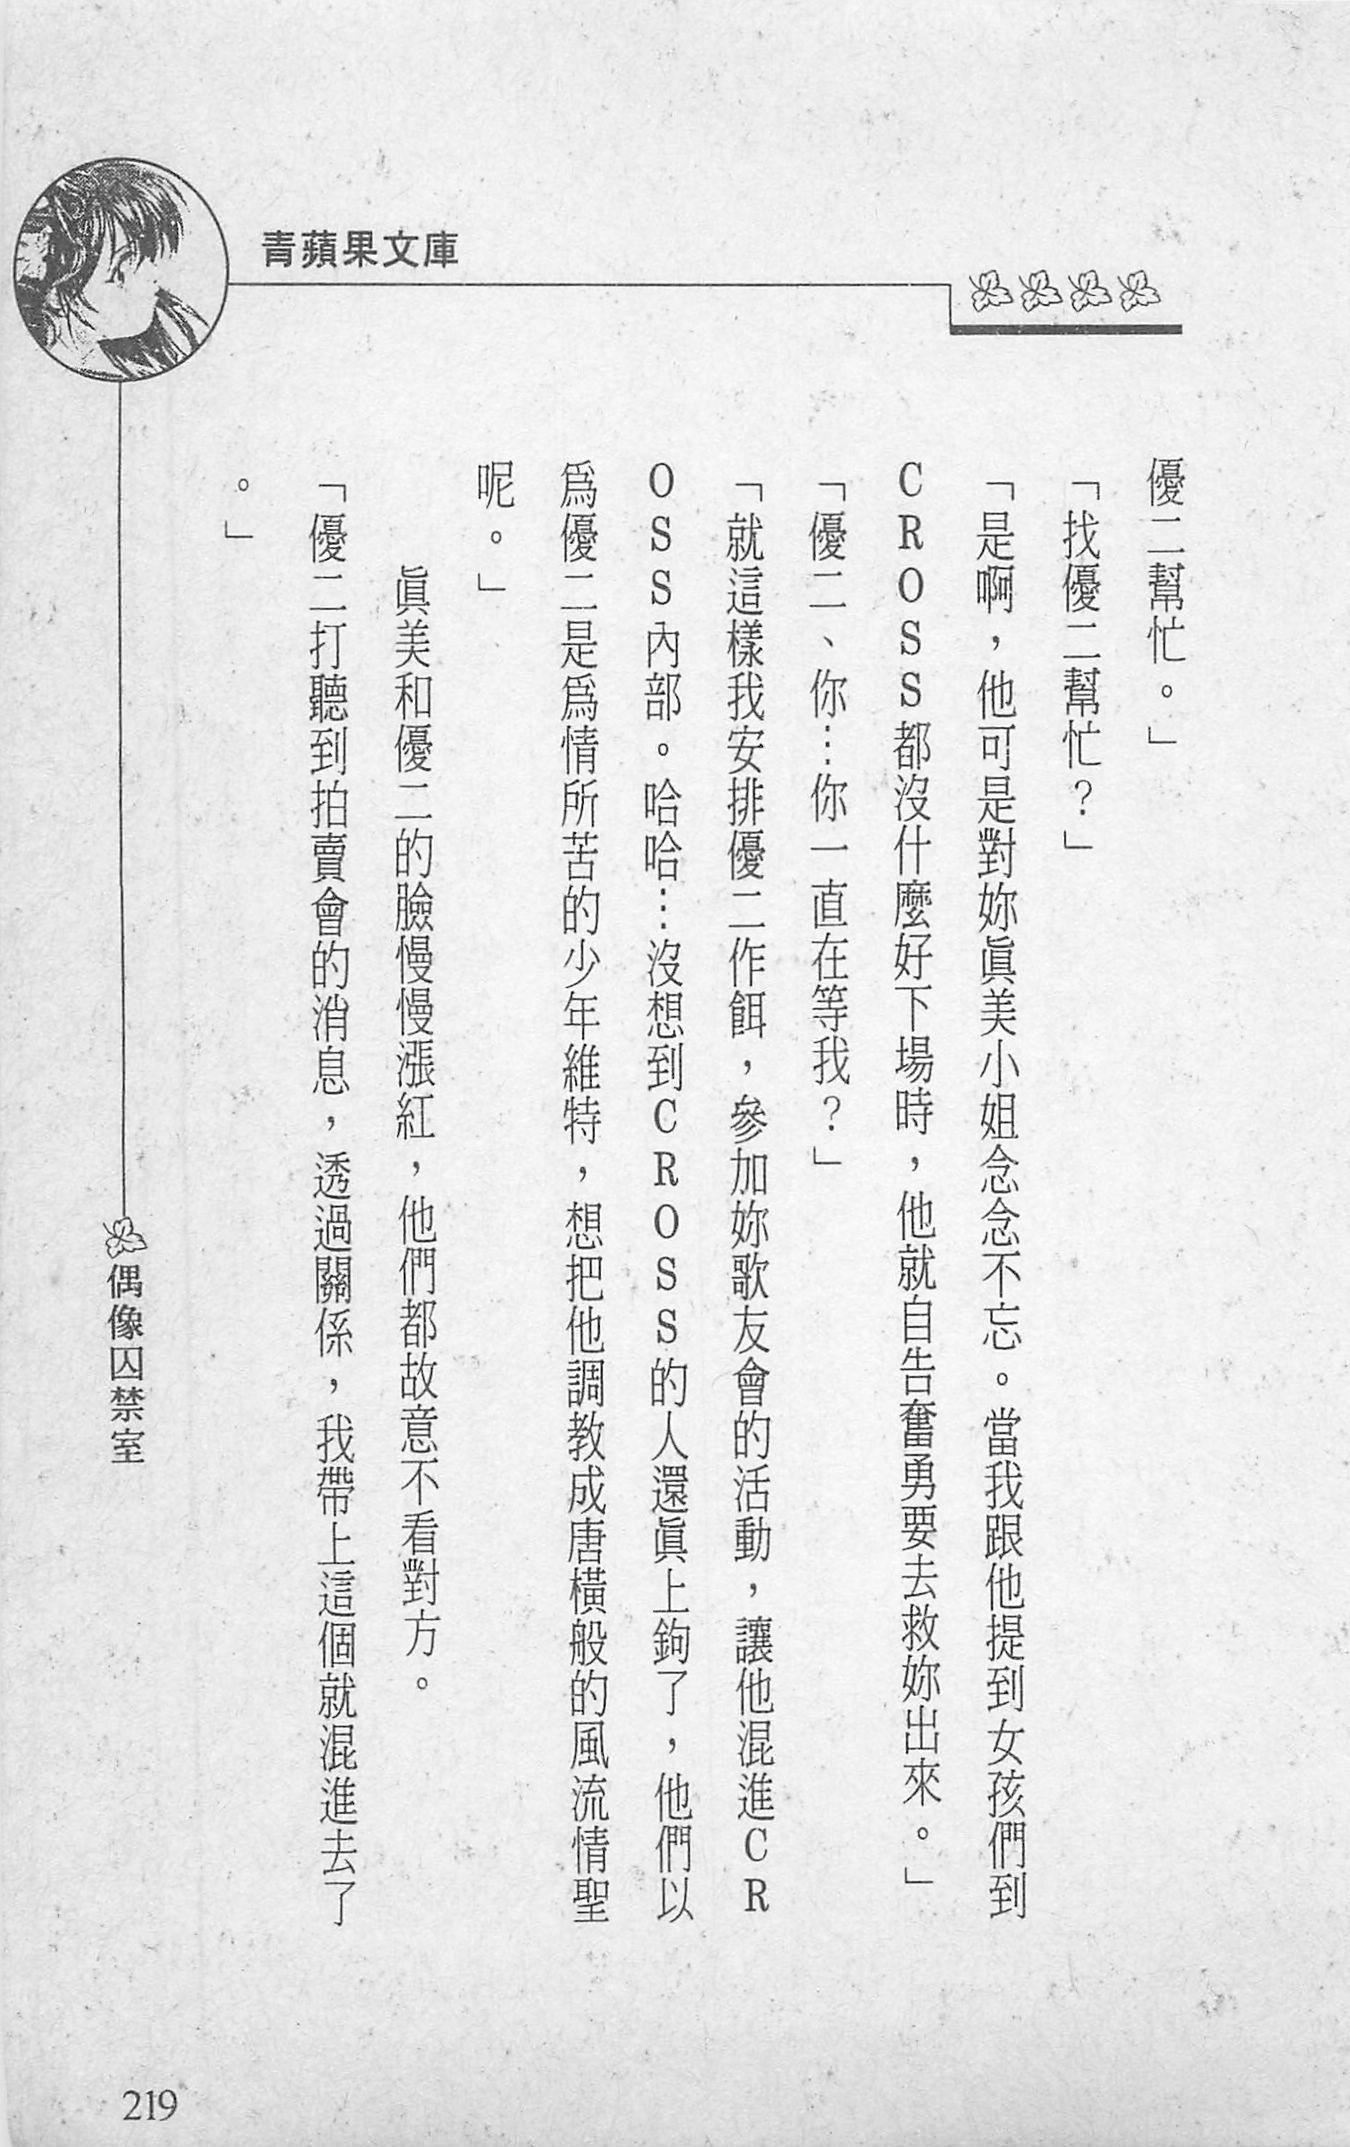 青蘋果文庫
優二幫忙。」
「找優二幫忙？」
「是啊，他可是對妳眞美小姐念念不忘。當我跟他提到女孩們到
CROSS都沒什麼好下場時，他就自告奮勇要去救妳出來。」
「優二、你…你一直在等我？」
「就這樣我安排優二作餌，參加妳歌友會的活動，讓他混進CR
OSS內部。哈哈…沒想到CROSS的人還眞上鉤了，他們以
爲優二是爲情所苦的少年維特，想把他調教成唐橫般的風流情聖
呢。」
眞美和優二的臉慢慢漲紅，他們都故意不看對方。
「優二打聽到拍賣會的消息，透過關係，我帶上這個就混進去了
。」
偶像囚禁室
219